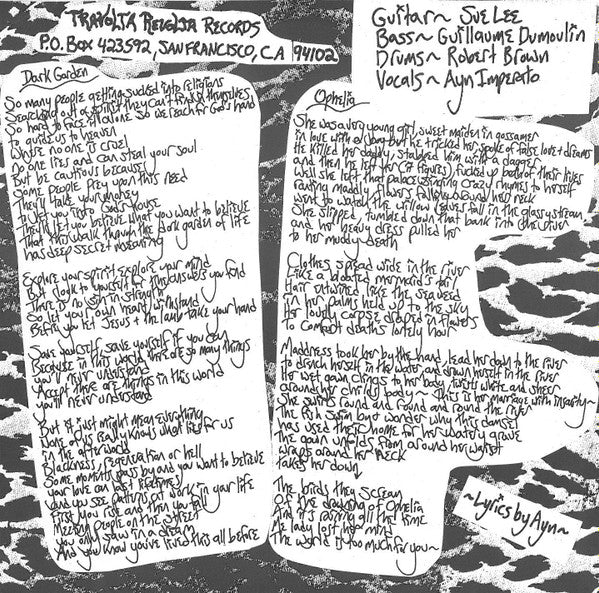 TRAVOLTA REVOLTA RECORDS
P.O. BOX 423592, SAN FRANCISCO, C.A 94102
Guitar~ Sue Lee
Bass~ Guillaume Dumoulin
Drums~ Robert Brown
Vocals~ Ayn Imperato
Dark Garden
So many people getting sucked into religions
Searching out a saint they can't find in themselves
So hard to face it alone so we reach for God's hand
To guide us to heaven
Where no one is cruel
no one lies and can steal your soul
But be cautious because
Some people prey upon this need
They'll take your money
To let you into God's house
They'll let you believe what you want to believe
That this walk through the dark garden of life
has deep secret meaning
Explore your spirit explore your mind
But look to yourself for the answers you find
There is no sin in strength
So let your own heart withstand
Before you let Jesus & the lamb take your hand
Save yourself, save yourself if you can
Because in this world there are so many things
you'll never understand
Accept there are things in this world
you'll never understand
But it just might mean everything
None of us really knows what lies for us
in the afterworld
Blackness, regeneration or hell
Some moments pass by and you want to believe
your love can last lifetimes
And you see patterns at work in your life
First you rise and then you fall
Meeting people on the street
You only saw in a dream
And you know you've lived this all before
Ophelia
She was a very young girl, sweet maiden in gossamer
in love with a boy but he tricked her, spoke of false love & dreams
He killed her daddy, stabbed him with a dagger
and then he left her (it figures) fucked up both of their lives
Well she left that palace singing crazy rhymes to herself
raving madly, flowers followed round her neck
went to watch the willow leaves fall in the glassy stream
She slipped, tumbled down that bank into the river
and her heavy dress pulled her
to her muddy death
Clothes spread wide in the river
Like a bloated mermaid's tail
Hair entwined like the seaweed
in her palms held up to the sky
Her lovely corpse draped in flowers
To combat death's lonely hour
Maddness took her by the hand, lead her down to the river
to drench herself in the water, and drown herself in the river
Her wet gown clings to her body, twists white and sheer
around her childs body~ This is her marriage with insanity~
She swirls round and round and round the river
The fish swim but wonder why this damsel
has used their home for her watery grave
The gown unfolds from around her waist
wraps around her neck
takes her down
The birds they scream
Of the draining of Ophelia
And it's raining all the time
Me lady lost her mind
The world is too much for you~
~Lyrics by Ayn~